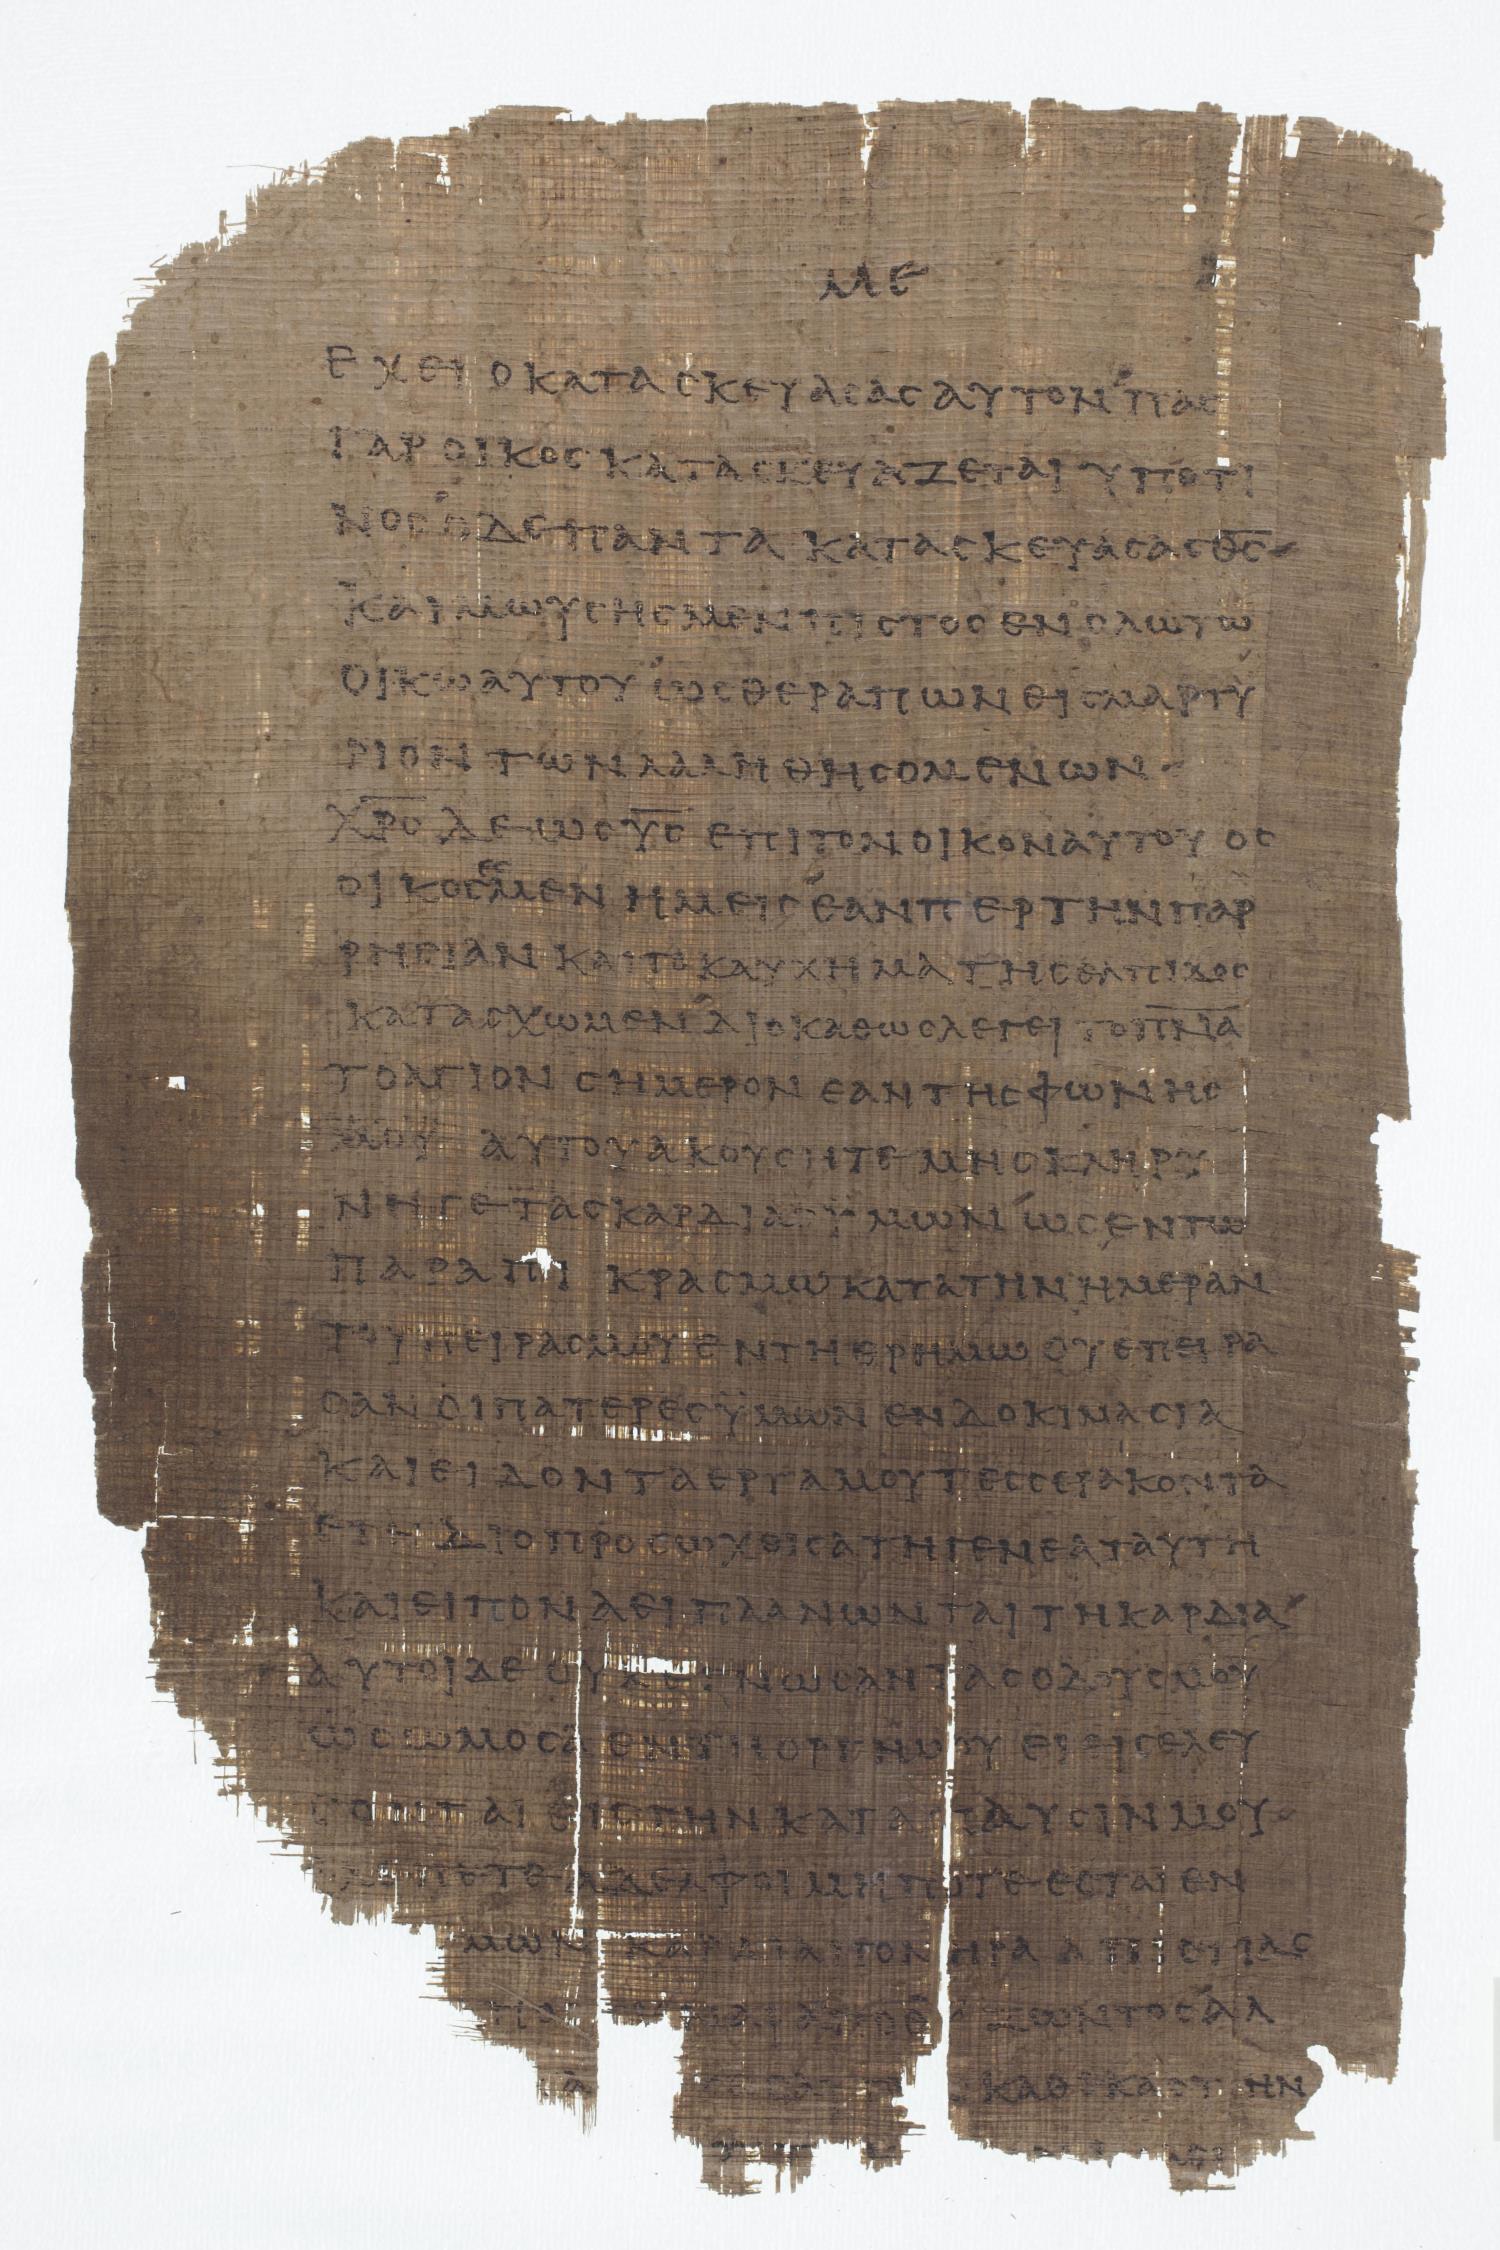 ΜΕ
ΕΧΕΙ Ο ΚΑΤΑϹΚΕΥΑϹΑϹ ΑΥΤΟΝ ΠΑϹ
ΓΑΡ ΟΙΚΟϹ ΚΑΤΑϹΚΕΥΑΖΕΤΑΙ ΥΠΟ ΤΙ
ΝΟϹ Ο ΔΕ ΠΑΝΤΑ ΚΑΤΑϹΚΕΥΑϹΑϹ Θ̅Ϲ̅
ΚΑΙ ΜΩΥϹΗϹ ΜΕΝ ΠΙϹΤΟϹ ΕΝ ΟΛΩ ΤΩ
ΟΙΚΩ ΑΥΤΟΥ ΩϹ ΘΕΡΑΠΩΝ ΕΙϹ ΜΑΡΤΥ
ΡΙΟΝ ΤΩΝ ΛΑΛΗΘΗϹΟΜΕΝΩΝ
Χ̅Ρ̅Ϲ̅ ΔΕ ΩϹ Υ̅Ϲ̅ ΕΠΙ ΤΟΝ ΟΙΚΟΝ ΑΥΤΟΥ ΟϹ
ΟΙΚΟϹ ΕϹΜΕΝ ΗΜΕΙϹ ΕΑΝΠΕΡ ΤΗΝ ΠΑΡ
ΡΗϹΙΑΝ ΚΑΙ ΤΟ ΚΑΥΧΗΜΑ ΤΗϹ ΕΛΠΙΔΟϹ
ΚΑΤΑϹΧΩΜΕΝ ΔΙΟ ΚΑΘΩϹ ΛΕΓΕΙ ΤΟ Π̅Ν̅Α̅
ΤΟ ΑΓΙΟΝ ϹΗΜΕΡΟΝ ΕΑΝ ΤΗϹ ΦΩΝΗϹ
ΜΟΥ ΑΥΤΟΥ ΑΚΟΥϹΗΤΕ ΜΗ ϹΚΛΗΡΥ
ΝΗΤΕ ΤΑϹ ΚΑΡΔΙΑϹ ΫΜΩΝ ΩϹ ΕΝ ΤΩ
ΠΑΡΑΠΙΚΡΑϹΜΩ ΚΑΤΑ ΤΗΝ ΗΜΕΡΑΝ
ΤΟΥ ΠΕΙΡΑϹΜΟΥ ΕΝ ΤΗ ΕΡΗΜΩ ΟΥ ΕΠΕΙΡΑ
ϹΑΝ ΟΙ ΠΑΤΕΡΕϹ ΫΜΩΝ ΕΝ ΔΟΚΙΜΑϹΙΑ
ΚΑΙ ΕΙΔΟΝ ΤΑ ΕΡΓΑ ΜΟΥ ΤΕϹϹΕΡΑΚΟΝΤΑ
ΕΤΗ ΔΙΟ ΠΡΟϹΩΧΘΙϹΑ ΤΗ ΓΕΝΕΑ ΤΑΥΤΗ
ΚΑΙ ΕΙΠΟΝ ΑΕΙ ΠΛΑΝΩΝΤΑΙ ΤΗ ΚΑΡΔΙΑ
ΑΥΤΟΙ ΔΕ ΟΥΚ ΕΓΝΩϹΑΝ ΤΑϹ ΟΔΟΥϹ ΜΟΥ
ΩϹ ΩΜΟϹΑ ΕΝ ΤΗ ΟΡΓΗ ΜΟΥ ΕΙ ΕΙϹΕΛΕΥ
ϹΟΝΤΑΙ ΕΙϹ ΤΗΝ ΚΑΤΑΠΑΥϹΙΝ ΜΟΥ
ΒΛΕΠΕΤΕ ΑΔΕΛΦΟΙ ΜΗΠΟΤΕ ΕϹΤΑΙ ΕΝ
ΜΩΝ ΚΑΡΔΙΑ ΠΟΝΗΡΑ ΑΠΙϹΤΙΑϹ
ΖΩΝΤΟϹ ΑΛ
ΚΑΘ ΕΚΑϹΤΗΝ